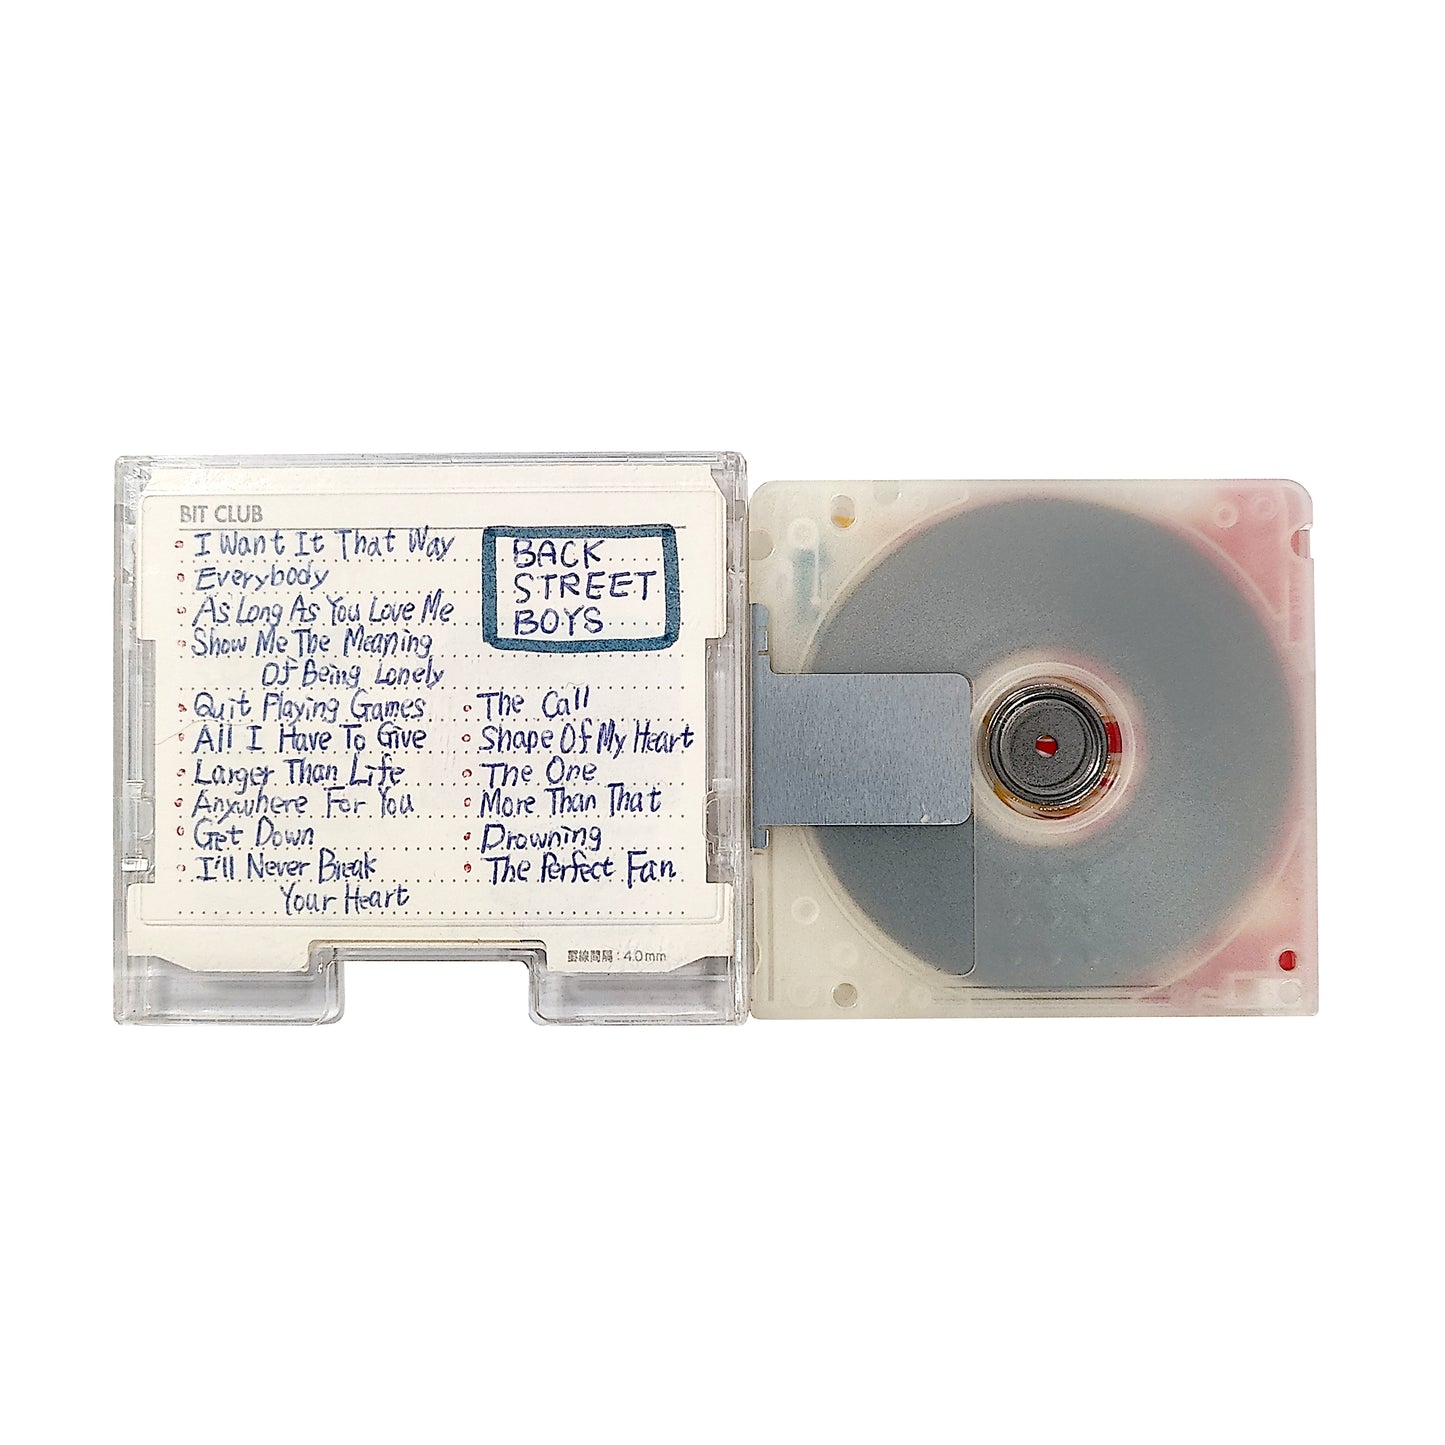 BIT CLUB
I Want It That Way
Everybody
As Long As You Love Me
Show Me The Meaning
Of Being Lonely
Quit Playing Games
All I Have To Give
Larger Than Life
Anywhere For You
Get Down
I'll Never Break
Your Heart
BACK
STREET
BOYS
The Call
Shape Of My Heart
The One
More Than That
Drowning
The Perfect Fan
罫線間隔:4.0mm